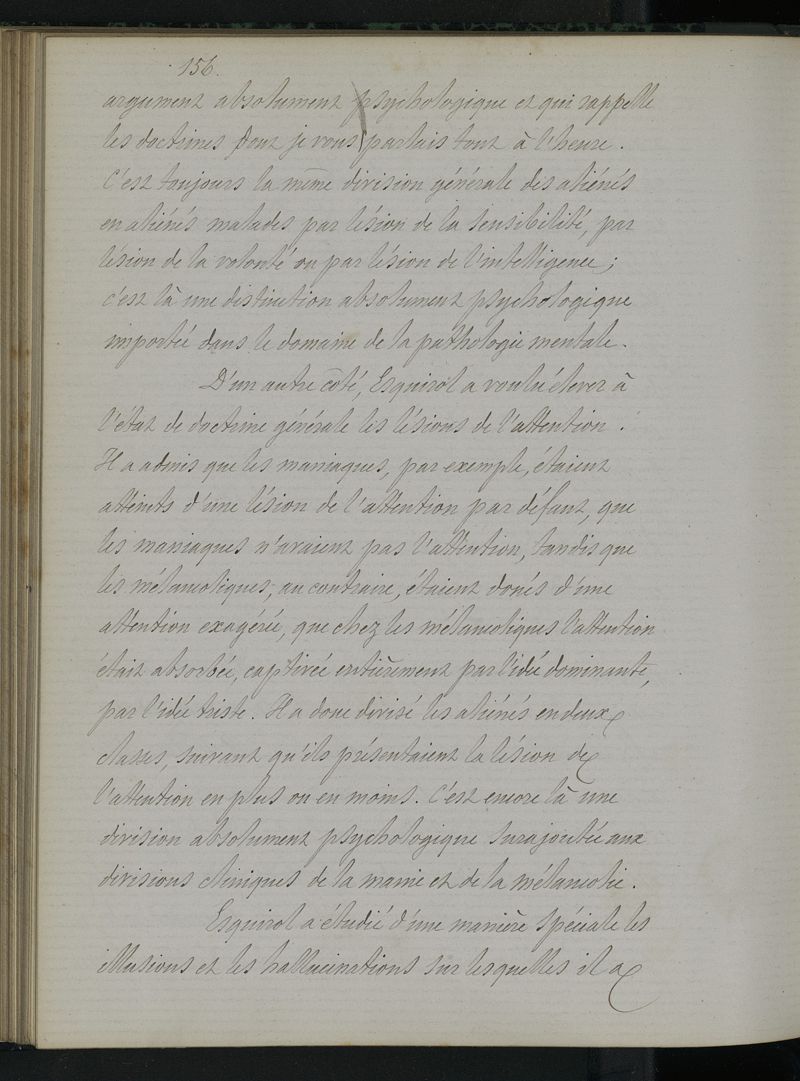 156.
argument absolument psychologique et qui rappelle
les doctrines dont je vous parlais tout à l'heure.
C'est toujours la même division générale des aliénés
en aliénés malades par lésion de la sensibilité, par
lésion de la volonté ou par lésion de l'intelligence ;
c'est là une distinction absolument psychologique
importée dans le domaine de la pathologie mentale.
D'un autre côté, Esquirol a voulu élever à
l'état de doctrine générale les lésions de l'attention.
Il a admis que les maniaques, par exemple, étaient
atteints d'une lésion de l'attention par défaut, que
les maniaques n'avaient pas l'attention, tandis que
les mélancoliques, au contraire, étaient doués d'une
attention exagérée, que chez les mélancoliques l'attention
était absorbée, captivée entièrement par l'idée dominante,
par l'idée triste. Il a donc divisé les aliénés en deux
classes, suivant qu'ils présentaient la lésion de
l'attention en plus ou en moins. C'est encore là une
division absolument psychologique surajoutée aux
divisions cliniques de la manie et de la mélancolie.
Esquirol a étudié d'une manière spéciale les
illusions et les hallucinations sur lesquelles il a